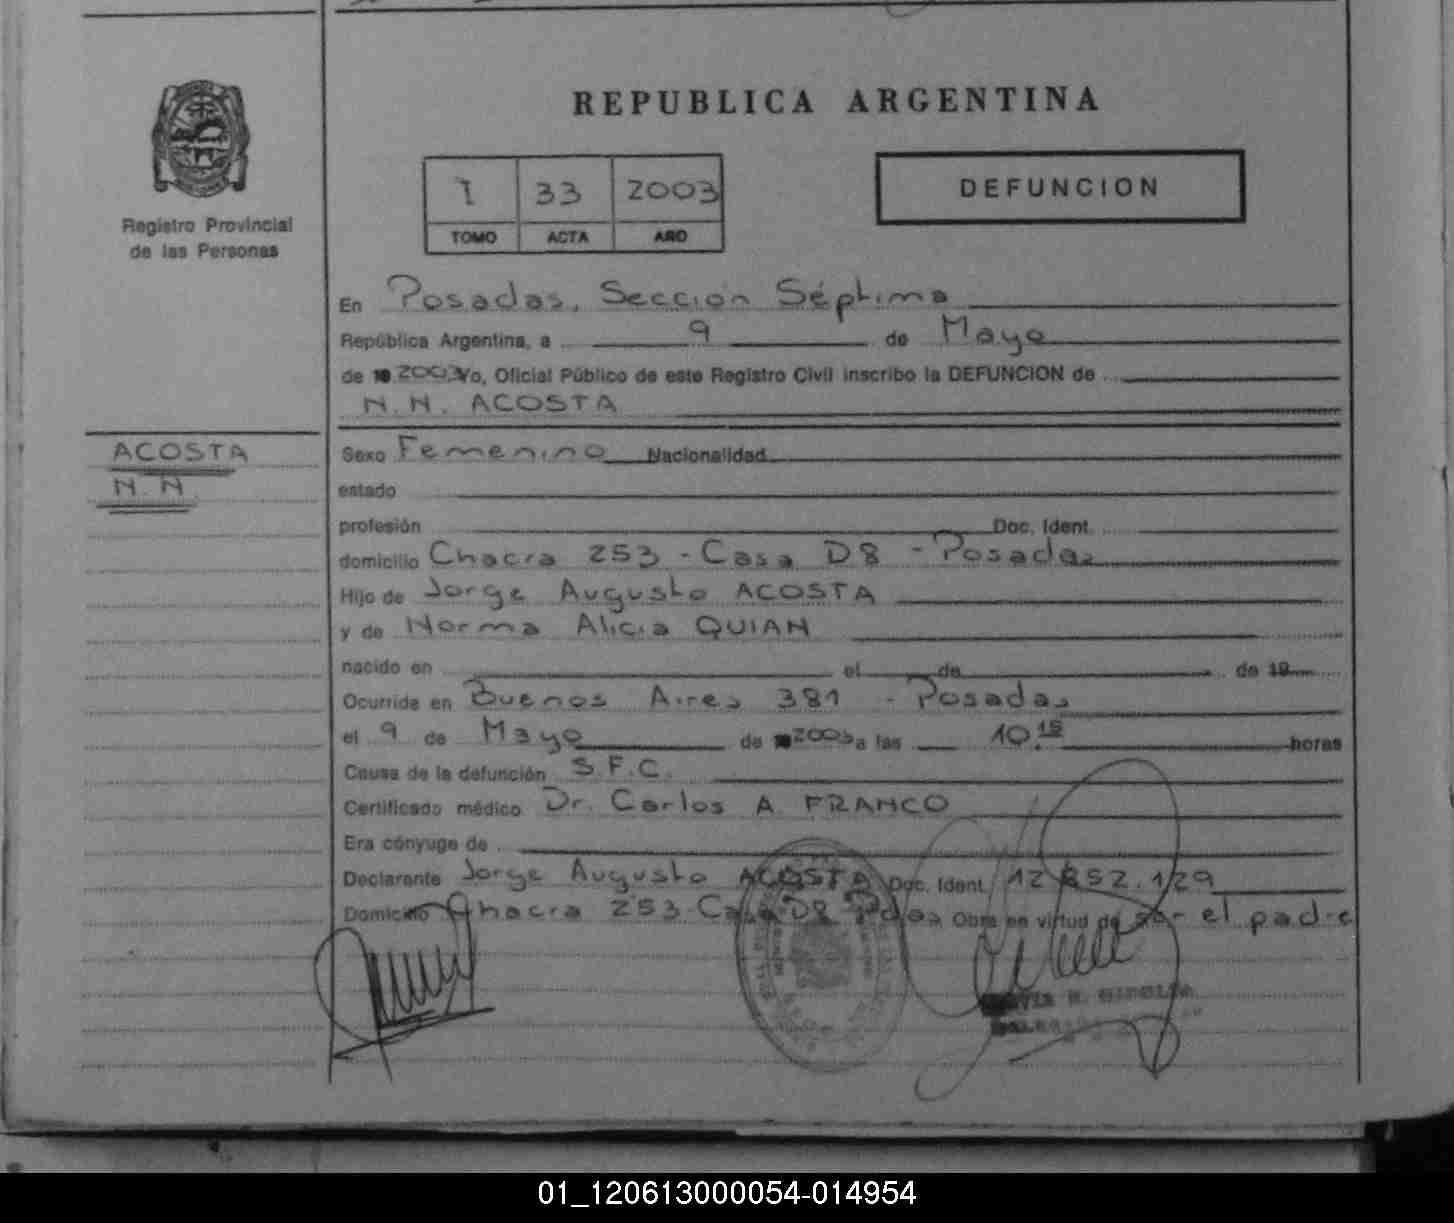 REPUBLICA ARGENTINA
1 33 2003
TOMO ACTA AÑO
DEFUNCION
Registro Provincial
de las Personas
En Posadas, Sección Séptima
República Argentina, a 9 de Mayo
de 19 2003 Yo, Oficial Público de este Registro Civil inscribo la DEFUNCION de
N.N. ACOSTA
ACOSTA
N.N.
Sexo Femenino Nacionalidad
estado
profesión Doc. Ident.
domicilio Chacra 253 - Casa D8 - Posadas
Hijo de Jorge Augusto ACOSTA
y de Norma Alicia QUIAN
nacido en el de de 19
Ocurrida en Buenos Aires 381 - Posadas
el 9 de Mayo de 19 2003 a las 10.15 horas
Causa de la defunción S.F.C.
Certificado médico Dr. Carlos A. FRANCO
Era cónyuge de
Declarante Jorge Augusto ACOSTA Doc. Ident. 12.852.129
Domicilio Chacra 253 Casa D8 Pdas Obra en virtud de ser el padre
01_120613000054-014954